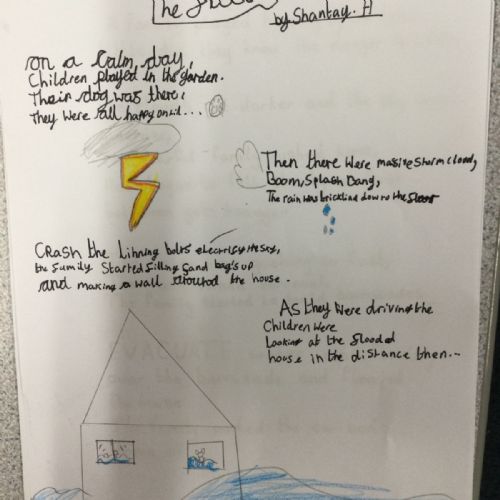 The
by Shantay. H
on a Calm day,
Children played in the garden.
Their dog was there,
They were all happy until...
Then there were massive storm cloud,
Boom, Splash Bang,
The rain was brickling down to the floor
Crash the Lihning bolts electrisy the sky,
the family started filling sand bag's up
and making a wall around the house.
As they were driving the
Children were
Looking at the flooded
house in the distance then...